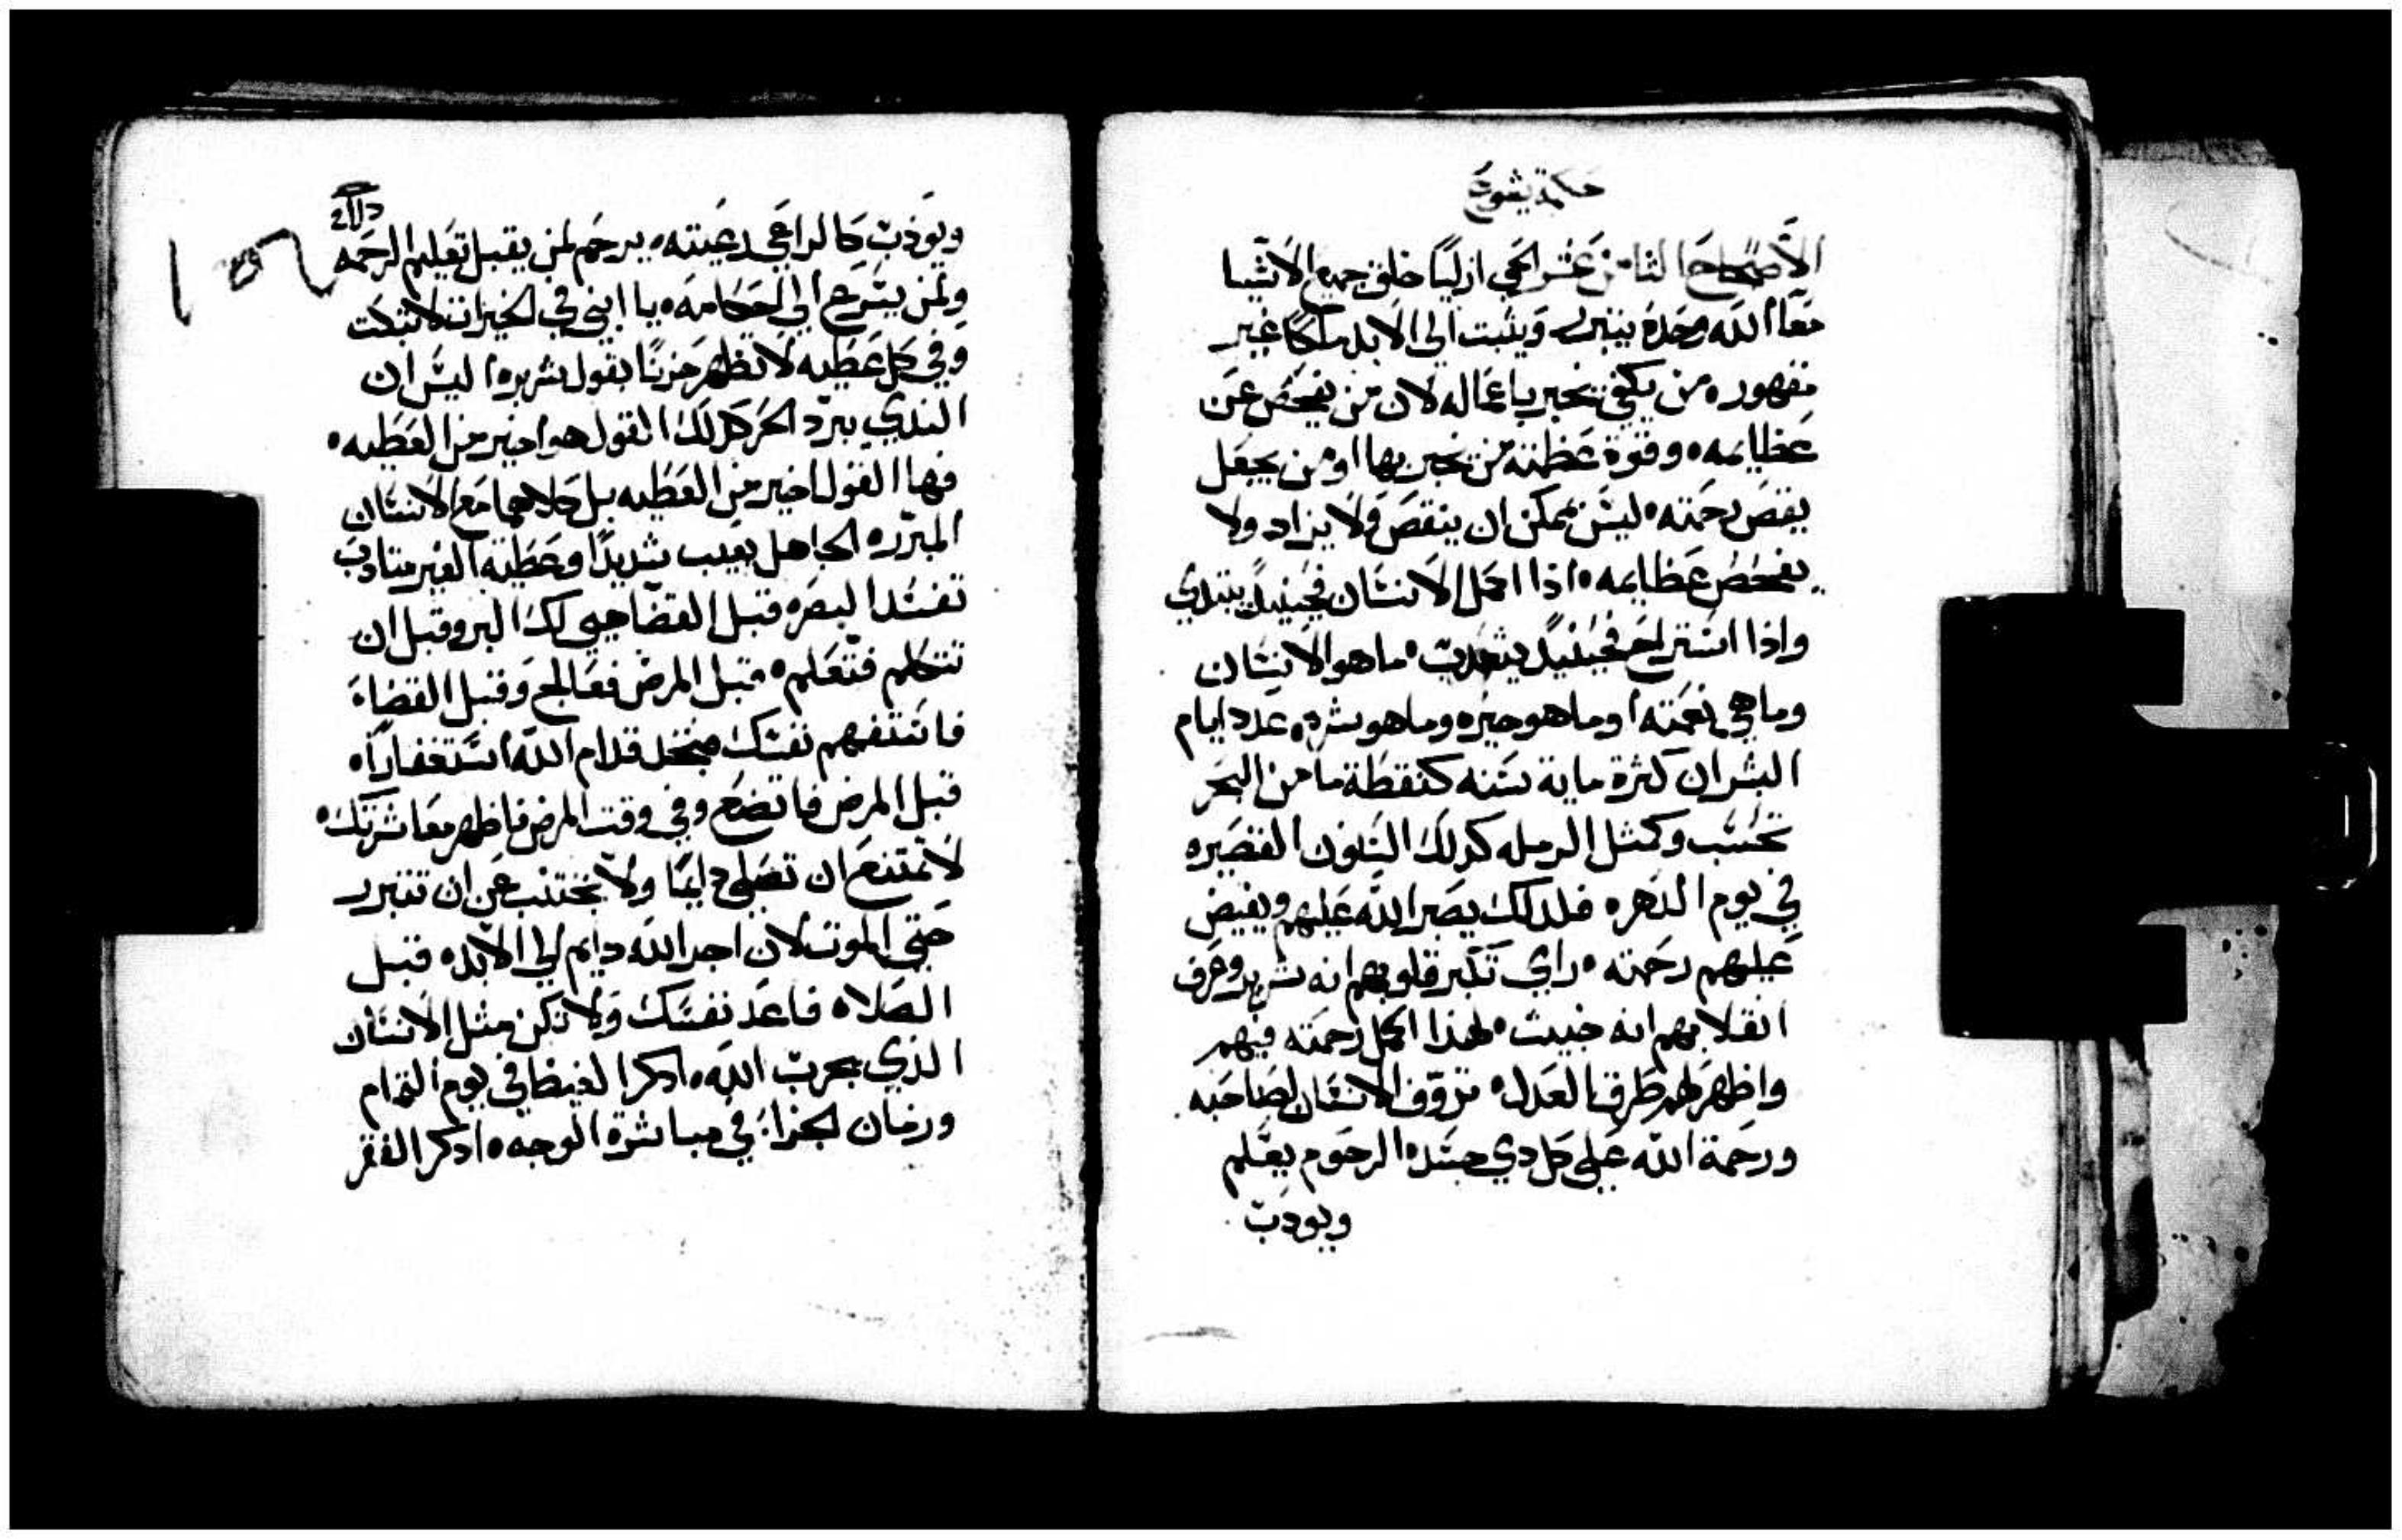 حكمة يشوع
الاصحاح الثامن عشر الحي ازليًا خلق جميع الاشيا
معًا الله وحده يتبرر ويثبت الي الابد ملكًا غير
مقهور ه من يكفي يخبر باعماله لان من يفحص عن
عظايمه ه وقوة عظمته من يخبر بها او من يجعل
يقص رحمته ه ليس يمكن ان ينقص ولا يزاد ولا
يفحص عظايمه ه اذا اكمل الانسان فحينيدٍ يبتدي
واذا استراح فحينيدٍ يتحدث ه ما هو الانسان
وما هي نعمته ا وما هو خيره وما هو شره ه عدد ايام
البشر ان كثرة ماية سنه كنقطة ما من البحر
تحسب وكمثل الرمله كذلك السنون القصيره
في يوم الدهر ه فلدلك يصبر الله عليهم ويفيض
عليهم رحمته ه راي تكبر قلوبهم انه شرير وعرف
انقلابهم انه خبيث ه لهذا اكمل رحمته فيهم
واظهر لهم طرق العدل ه تروّف الانسان لصاحبه
ورحمة الله علي كل دي جسد ه الرحوم يعلم
ويودب
ويودب كالراعي رعيته ه يرحم لمن يقبل تعليم الرحمه
ولمن يسرع الي احكامه ه يا ابني في الخيرات لا تبكت
وفي كل عطيه لا تظهر حزنًا بقول شرير ه اليس ان
الندي يبرد الحر كدلك القول هو اخير من العطيه ه
فها القول اخير من العطيه بل كلاهما مع الانسان
المبرر ه الجاهل يعيب شديدًا وعطية الغير متادب
تفسد البصر ه قبل القضا هيي لك البر وقبل ان
تتكلم فتعلم ه قبل المرض فعالج وقبل القضاء
فاستفهم نفسك فتجد قدام الله استغفارًا ه
قبل المرض فاتضع وفي وقت المرض فاظهر معاشرتك ه
لا تمتنع ان تصلي دايمًا ولا تجتنب عن ان تتبرر
حتي الموت لان اجر الله دايم الي الابد ه قبل
الصلاه فاعد نفسك ولا تكن مثل الانسان
الذي يجرب الله ه ادكر الغيظ في يوم التمام
وزمان الجزاء في مباشرة الوجه ه ادكر الفقر